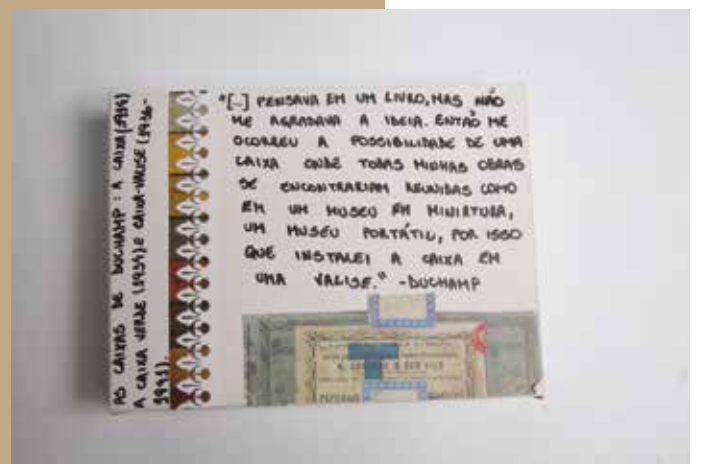 AS CAIXAS DE DUCHAMP: A CAIXA (1914)
A CAIXA VERDE (1934) E CAIXA-VALISE (1936-
1941).
"[...] PENSAVA EM UM LIVRO, MAS NÃO
ME AGRADAVA A IDEIA. ENTÃO ME
OCORREU A POSSIBILIDADE DE UMA
CAIXA ONDE TODAS MINHAS OBRAS
SE ENCONTRARIAM REUNIDAS COMO
EM UM MUSEU EM MINIATURA,
UM MUSEU PORTÁTIL, POR ISSO
QUE INSTALEI A CAIXA EM
UMA VALISE." -DUCHAMP